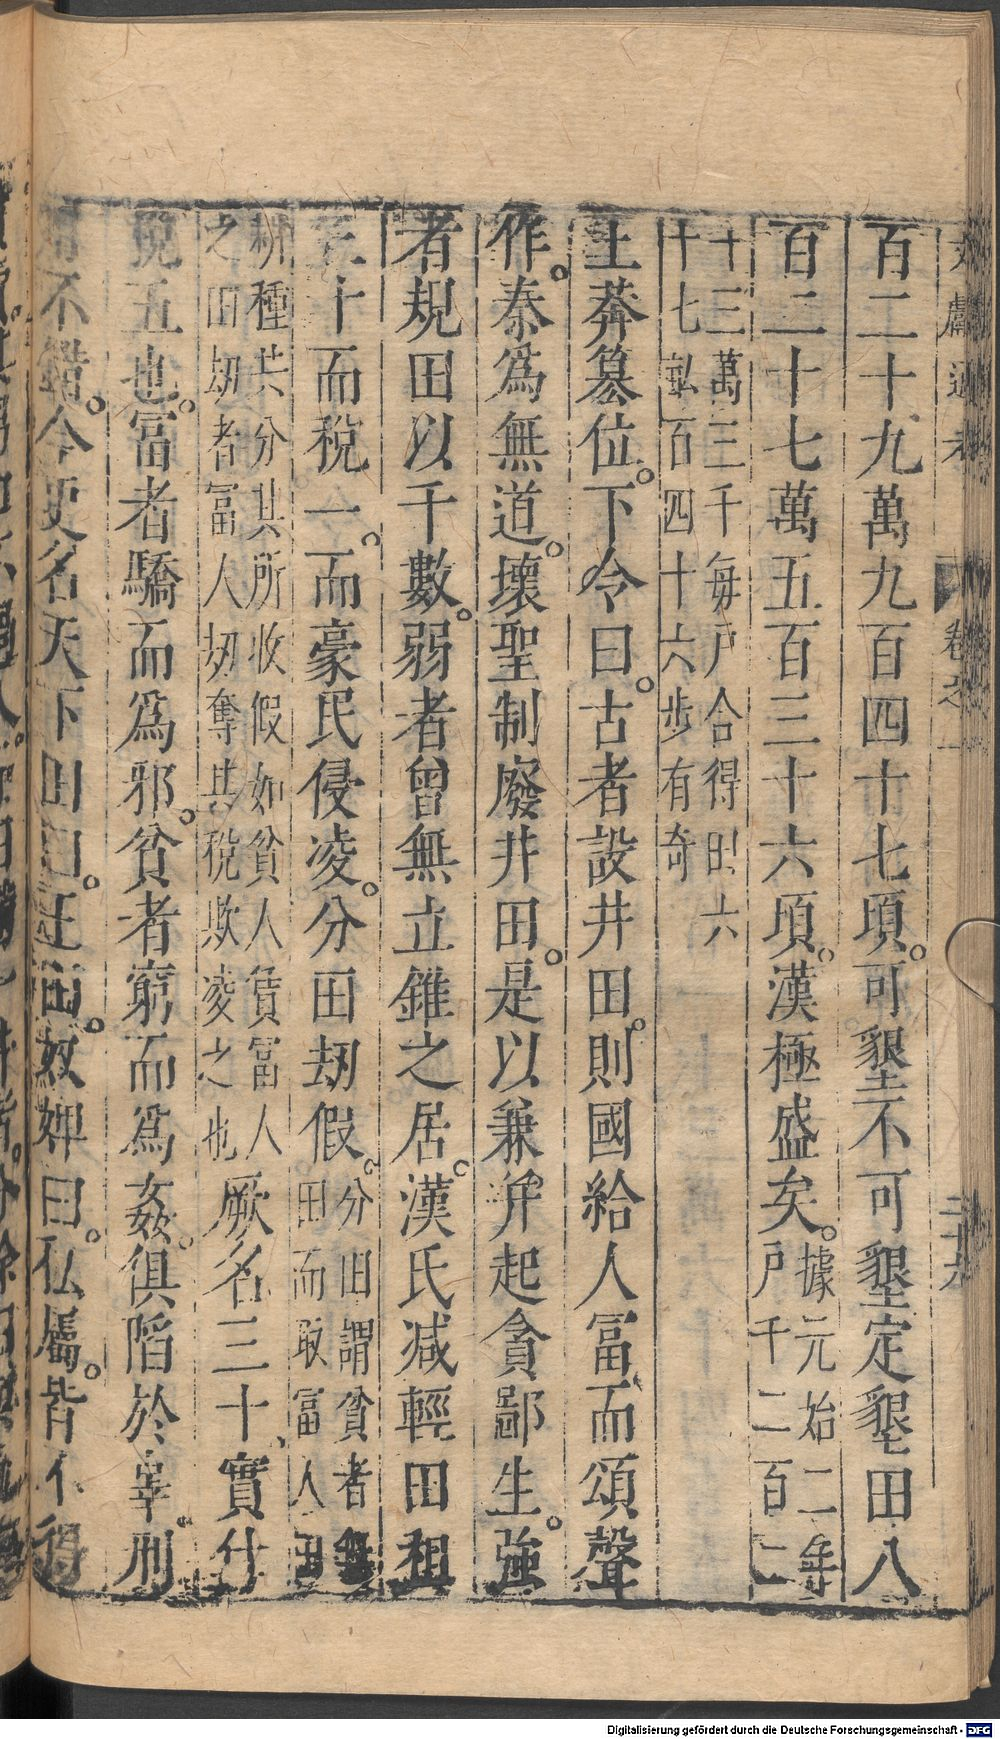 文獻通考 卷之一 二十六
百二十九萬九百四十七項。可墾不可墾定墾田八
百二十七萬五百三十六項。漢極盛矣。據元始二年戶千二百二
十三萬三千每戶合得田六十七畝百四十六步有奇
王莽篡位。下令曰。古者設井田。則國給人富。而頌聲
作。秦爲無道。壞聖制廢井田。是以兼并起貪鄙生。強
者規田以千數。弱者曾無立錐之居。漢氏減輕田租
三十而稅一。而豪民侵凌。分田刼假。分田謂貧者無田而取富人田
耕種共分其所收假如貧人賃富人之田刼者富人刼奪其稅欺凌之也厥名三十、實什
稅五也。富者驕而爲邪。貧者窮而爲姦。俱陷於辜。刑
用不錯。今更名天下田曰。王田。奴婢曰。私屬。皆不得
Digitalisierung gefördert durch die Deutsche Forschungsgemeinschaft - DFG